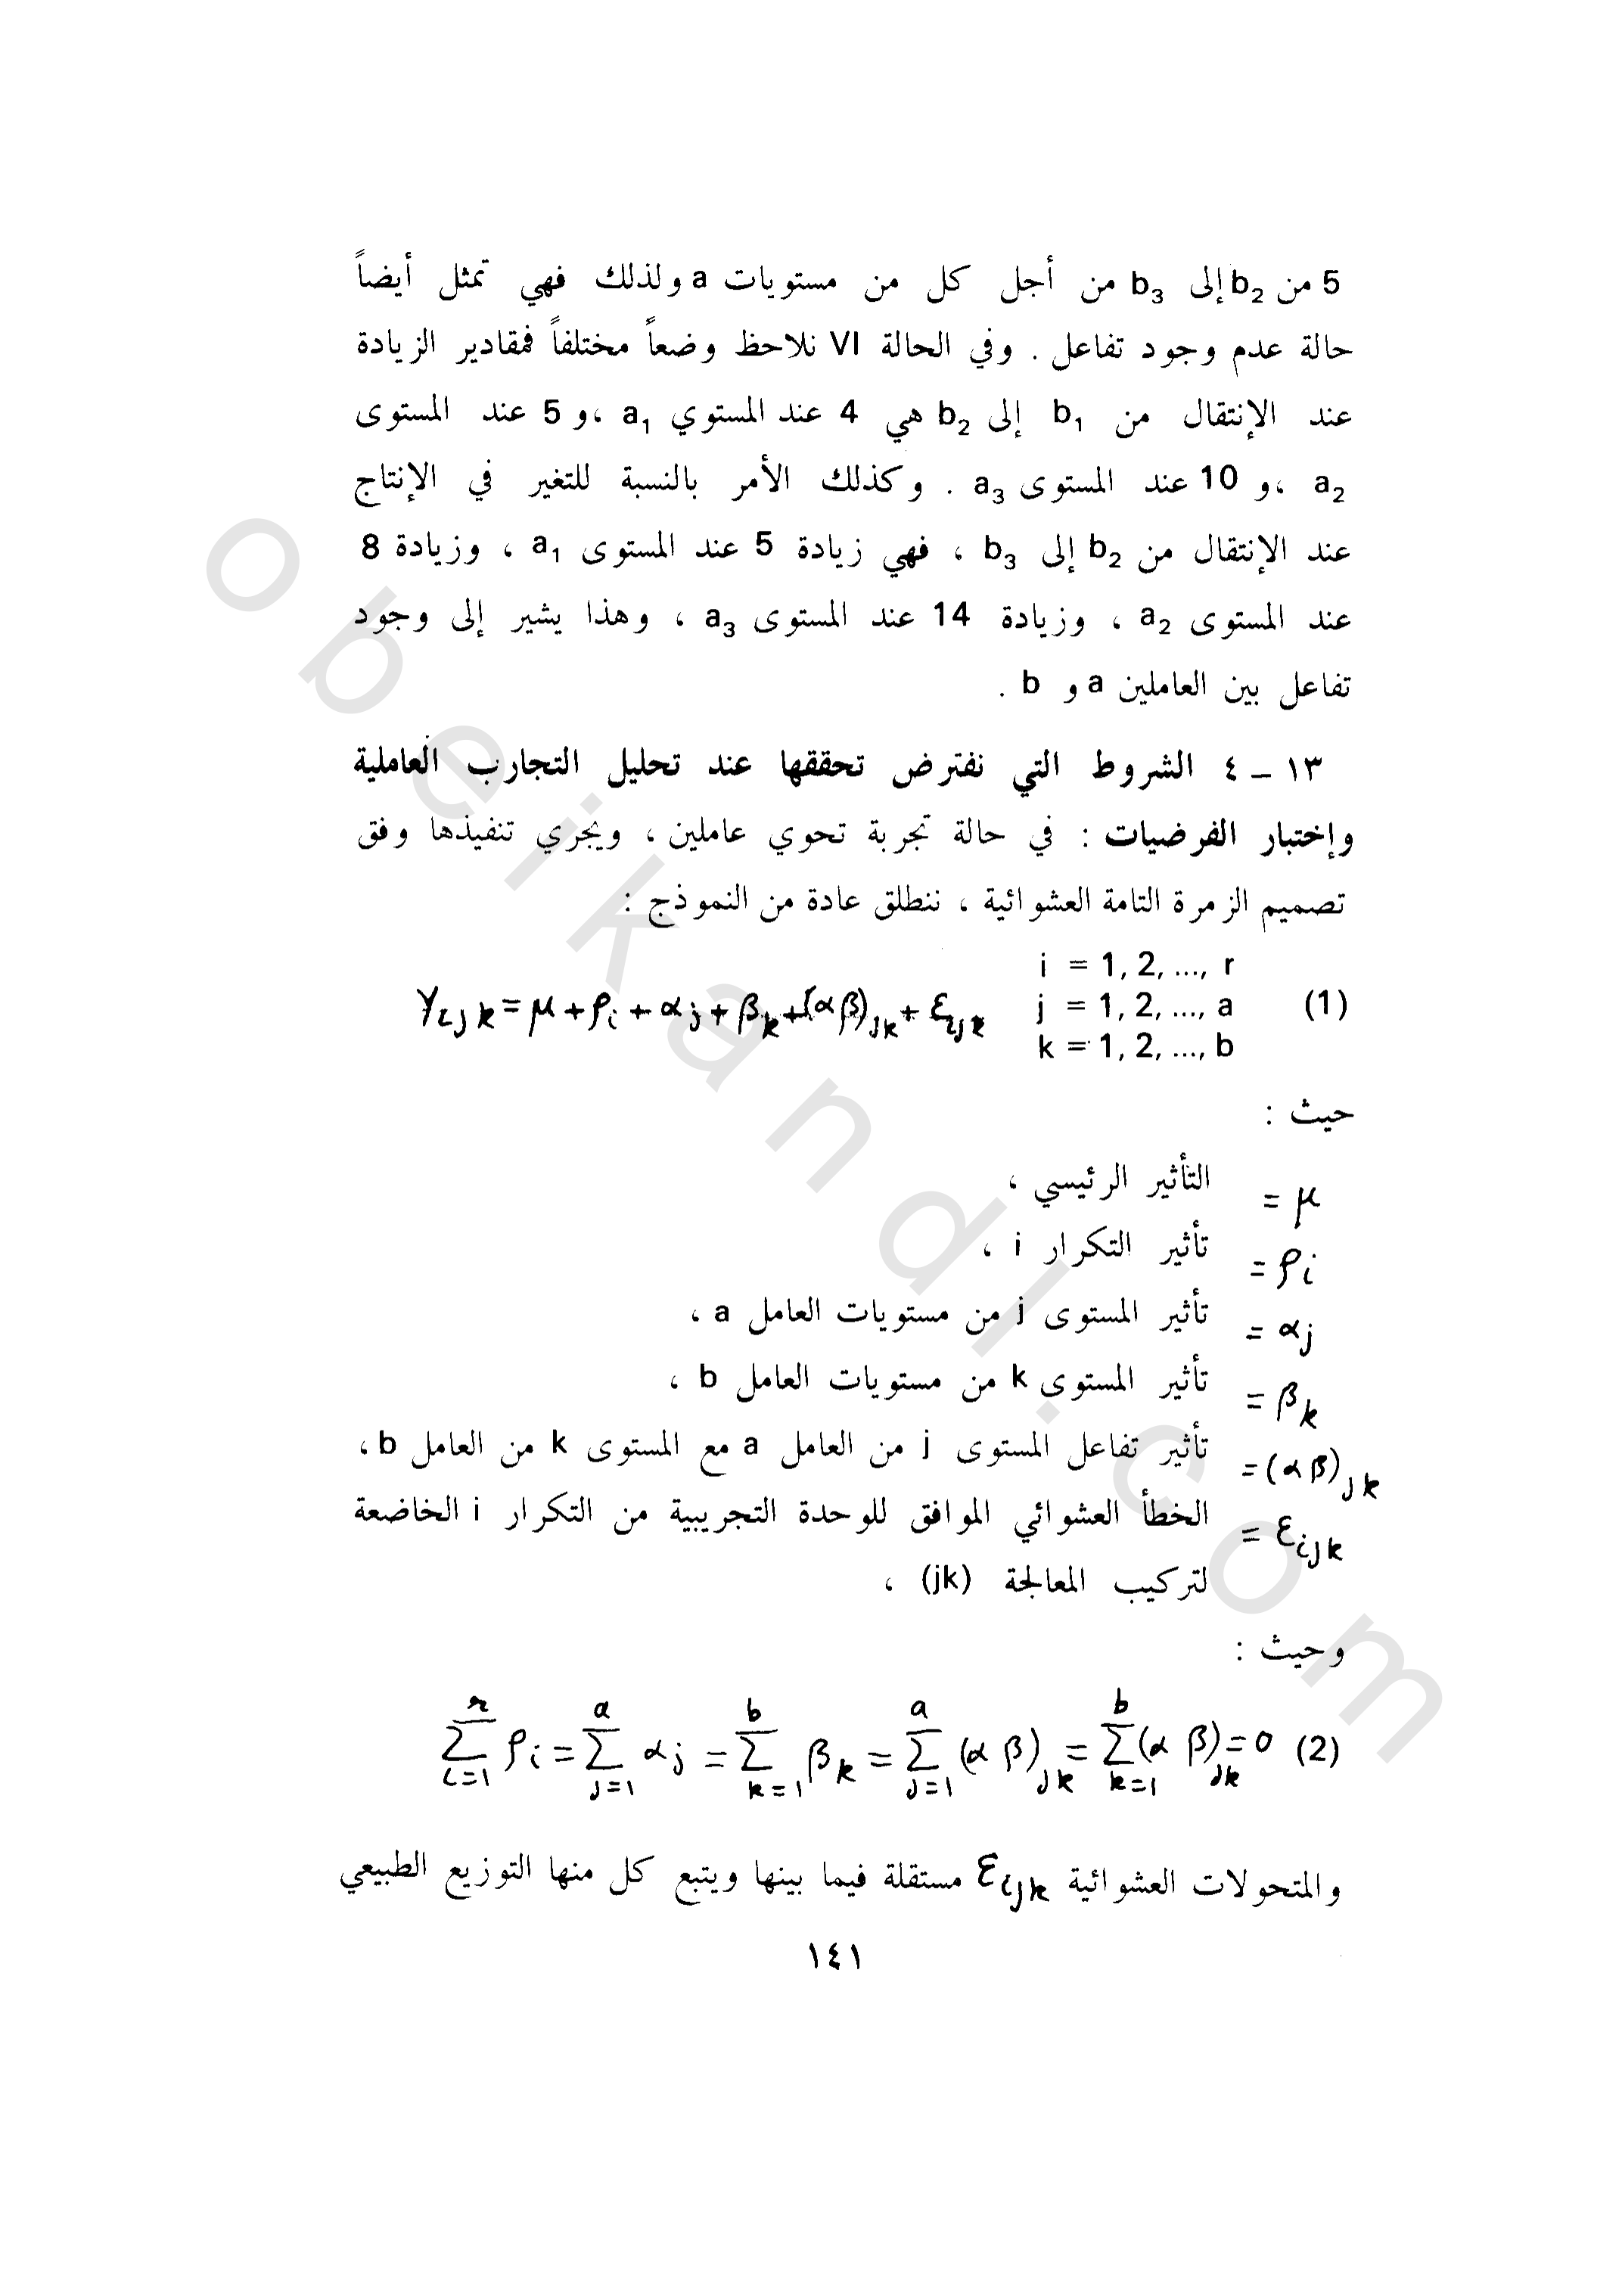 5 من b₂ إلى b₃ من أجل كل من مستويات a ولذلك فهي تمثل أيضاً
حالة عدم وجود تفاعل . وفي الحالة VI نلاحظ وضعاً مختلفاً فمقادير الزيادة
عند الإنتقال من b₁ إلى b₂ هي 4 عند المستوي a₁ ،و 5 عند المستوى
a₂ ،و 10 عند المستوى a₃ . وكذلك الأمر بالنسبة للتغير في الإنتاج
عند الإنتقال من b₂ إلى b₃ ، فهي زيادة 5 عند المستوى a₁ ، وزيادة 8
عند المستوى a₂ ، وزيادة 14 عند المستوى a₃ ، وهذا يشير إلى وجود
تفاعل بين العاملين a و b .
١٣ – ٤ الشروط التي نفترض تحققها عند تحليل التجارب العاملية
وإختبار الفرضيات : في حالة تجربة تحوي عاملين ، ويجري تنفيذها وفق
تصميم الزمرة التامة العشوائية ، ننطلق عادة من النموذج :
i = 1, 2, ..., r
Yᵢⱼₖ = μ + ρᵢ + αⱼ + βₖ + (αβ)ⱼₖ + εᵢⱼₖ j = 1, 2, ..., a (1)
k = 1, 2, ..., b
حيث :
μ = التأثير الرئيسي ،
ρᵢ = تأثير التكرار i ،
αⱼ = تأثير المستوى j من مستويات العامل a ،
βₖ = تأثير المستوى k من مستويات العامل b ،
(αβ)ⱼₖ = تأثير تفاعل المستوى j من العامل a مع المستوى k من العامل b ،
εᵢⱼₖ = الخطأ العشوائي الموافق للوحدة التجريبية من التكرار i الخاضعة
لتركيب المعالجة (jk) ،
وحيث :
∑ᵢ₌₁ʳ ρᵢ = ∑ⱼ₌₁ᵃ αⱼ = ∑ₖ₌₁ᵇ βₖ = ∑ⱼ₌₁ᵃ (αβ)ⱼₖ = ∑ₖ₌₁ᵇ (αβ)ⱼₖ = 0 (2)
والمتحولات العشوائية εᵢⱼₖ مستقلة فيما بينها ويتبع كل منها التوزيع الطبيعي
١٤١
obeikandl.com